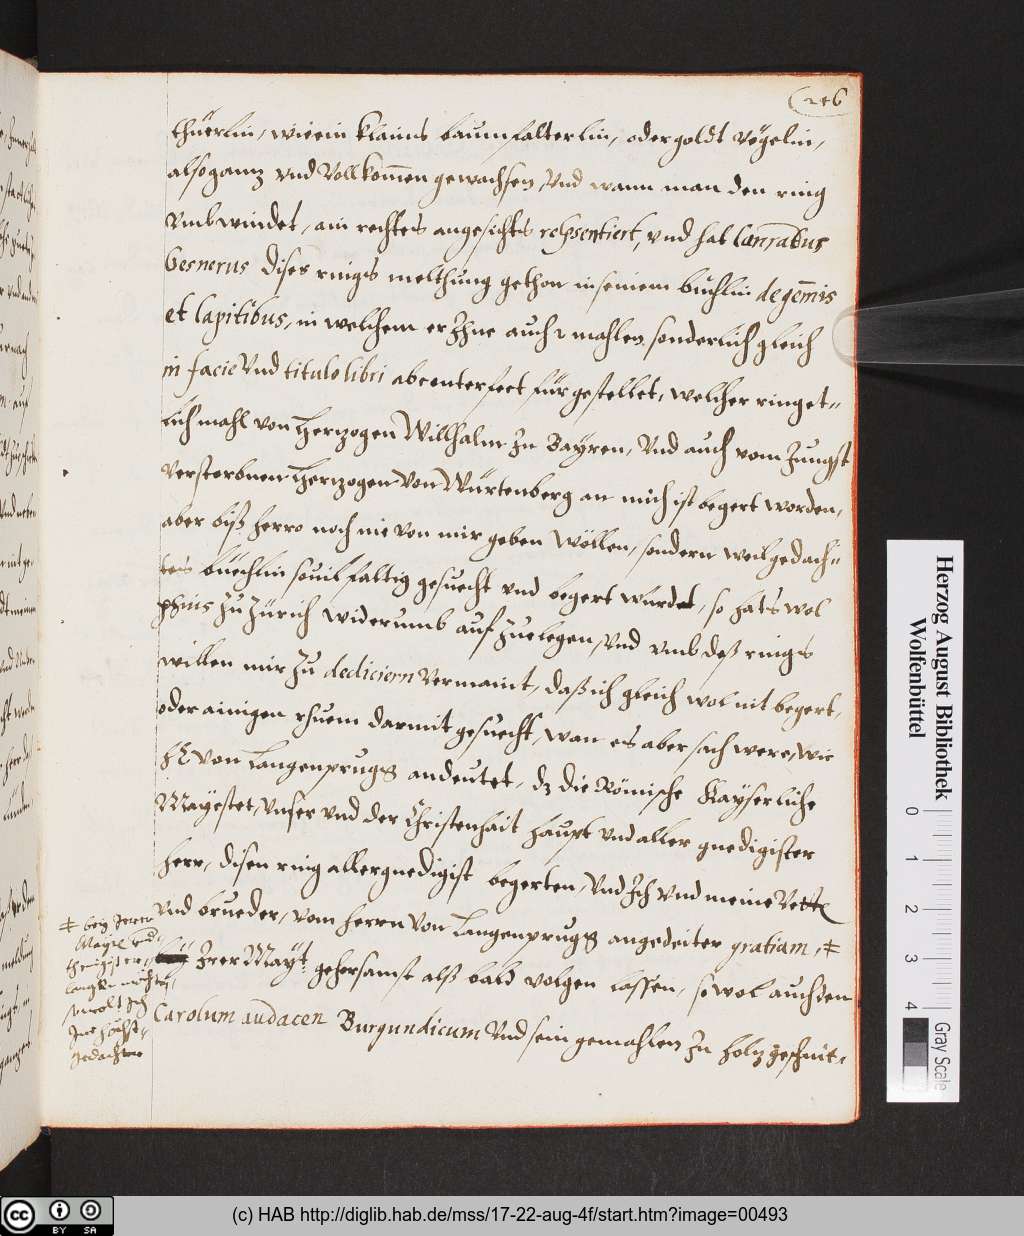 246
thüerlin, wie ein klains baumfalterlin, oder goldt vögelin,
also gantz vnd vollkom̄en gewachsen, vnd wann man den ring
vmbwindet, ain rechtes angesichts repsentiert, vnd hat Conradus
Gesnerus dises rings meldhung gethon in seinem buchlin de gem̄is
et lapitibus, in welchem er Ihne auch 2 mahlen sonderlich gleich
in facie vnd titulo libri abconterfect fürgestellet, welcher ring et-
lich mahl von Hertzogen Willhalm zu Bayren, vnd auch vom Jungst
verstorbnen Hertzogen von Würtenberg an mich ist begert worden,
aber biß herro noch nie von mir geben wöllen, sondern weil gedach-
tes büechlin souil faltig gesuecht vnd begert würdet, so hats wol
zu Zürich widerumb auf zuelegen, vnd vmb deß rings
willen mir zu dediciern vermaint, daß ich gleich wol nit begert,
oder ainigen rhuem darmit gesuecht, wan es aber sach were, wie
H. von Langenprugg andeutet, dz die Römische Kayserliche
Mayestet, vnser vnd der Christenhait haupt vnd aller gnedigister
herr, disen ring allergnedigist begerten, vnd Ich vnd meine Vettr
vnd brueder, vom herrn von Langenprugg angedeiter gratiam, ‡
Irer Mayt gehorsamst alß bald volgen lassen, so wol auch den
Carolum audacen Burgundicum vnd sein gemahlen zu holtz geschnit-
‡ bey Irer
Mayt. vnd-
langen möchten,
so wolt Ich
Jne höchst-
gedachter
Herzog August Bibliothek
Wolfenbüttel
0 1 2 3 4
Gray Scale
cc BY SA
(c) HAB http://diglib.hab.de/mss/17-22-aug-4f/start.htm?image=00493